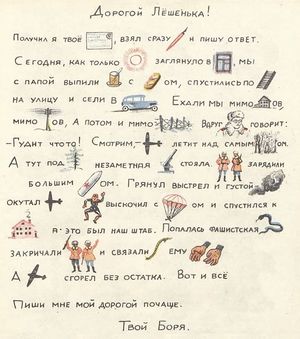 Дорогой Лёшенька!
Получил я твоё , взял сразу и пишу ответ.
Сегодня, как только заглянуло в , мы
с папой выпили с ом, спустились по
на улицу и сели в Ехали мы мимо ов,
мимо ов. А потом и мимо Вдруг говорит:
– Гудит что то! Смотрим, – летит над самым ом.
А тут под незаметная стояла. зарядили
большим ом. Грянул выстрел и густой
окутал выскочил с ом и спустился к
я – это был наш штаб. Попалась фашистская
Закричали и связали ему
А сгорел без остатка. Вот и всё
Пиши мне мой дорогой почаще.
Твой Боря.